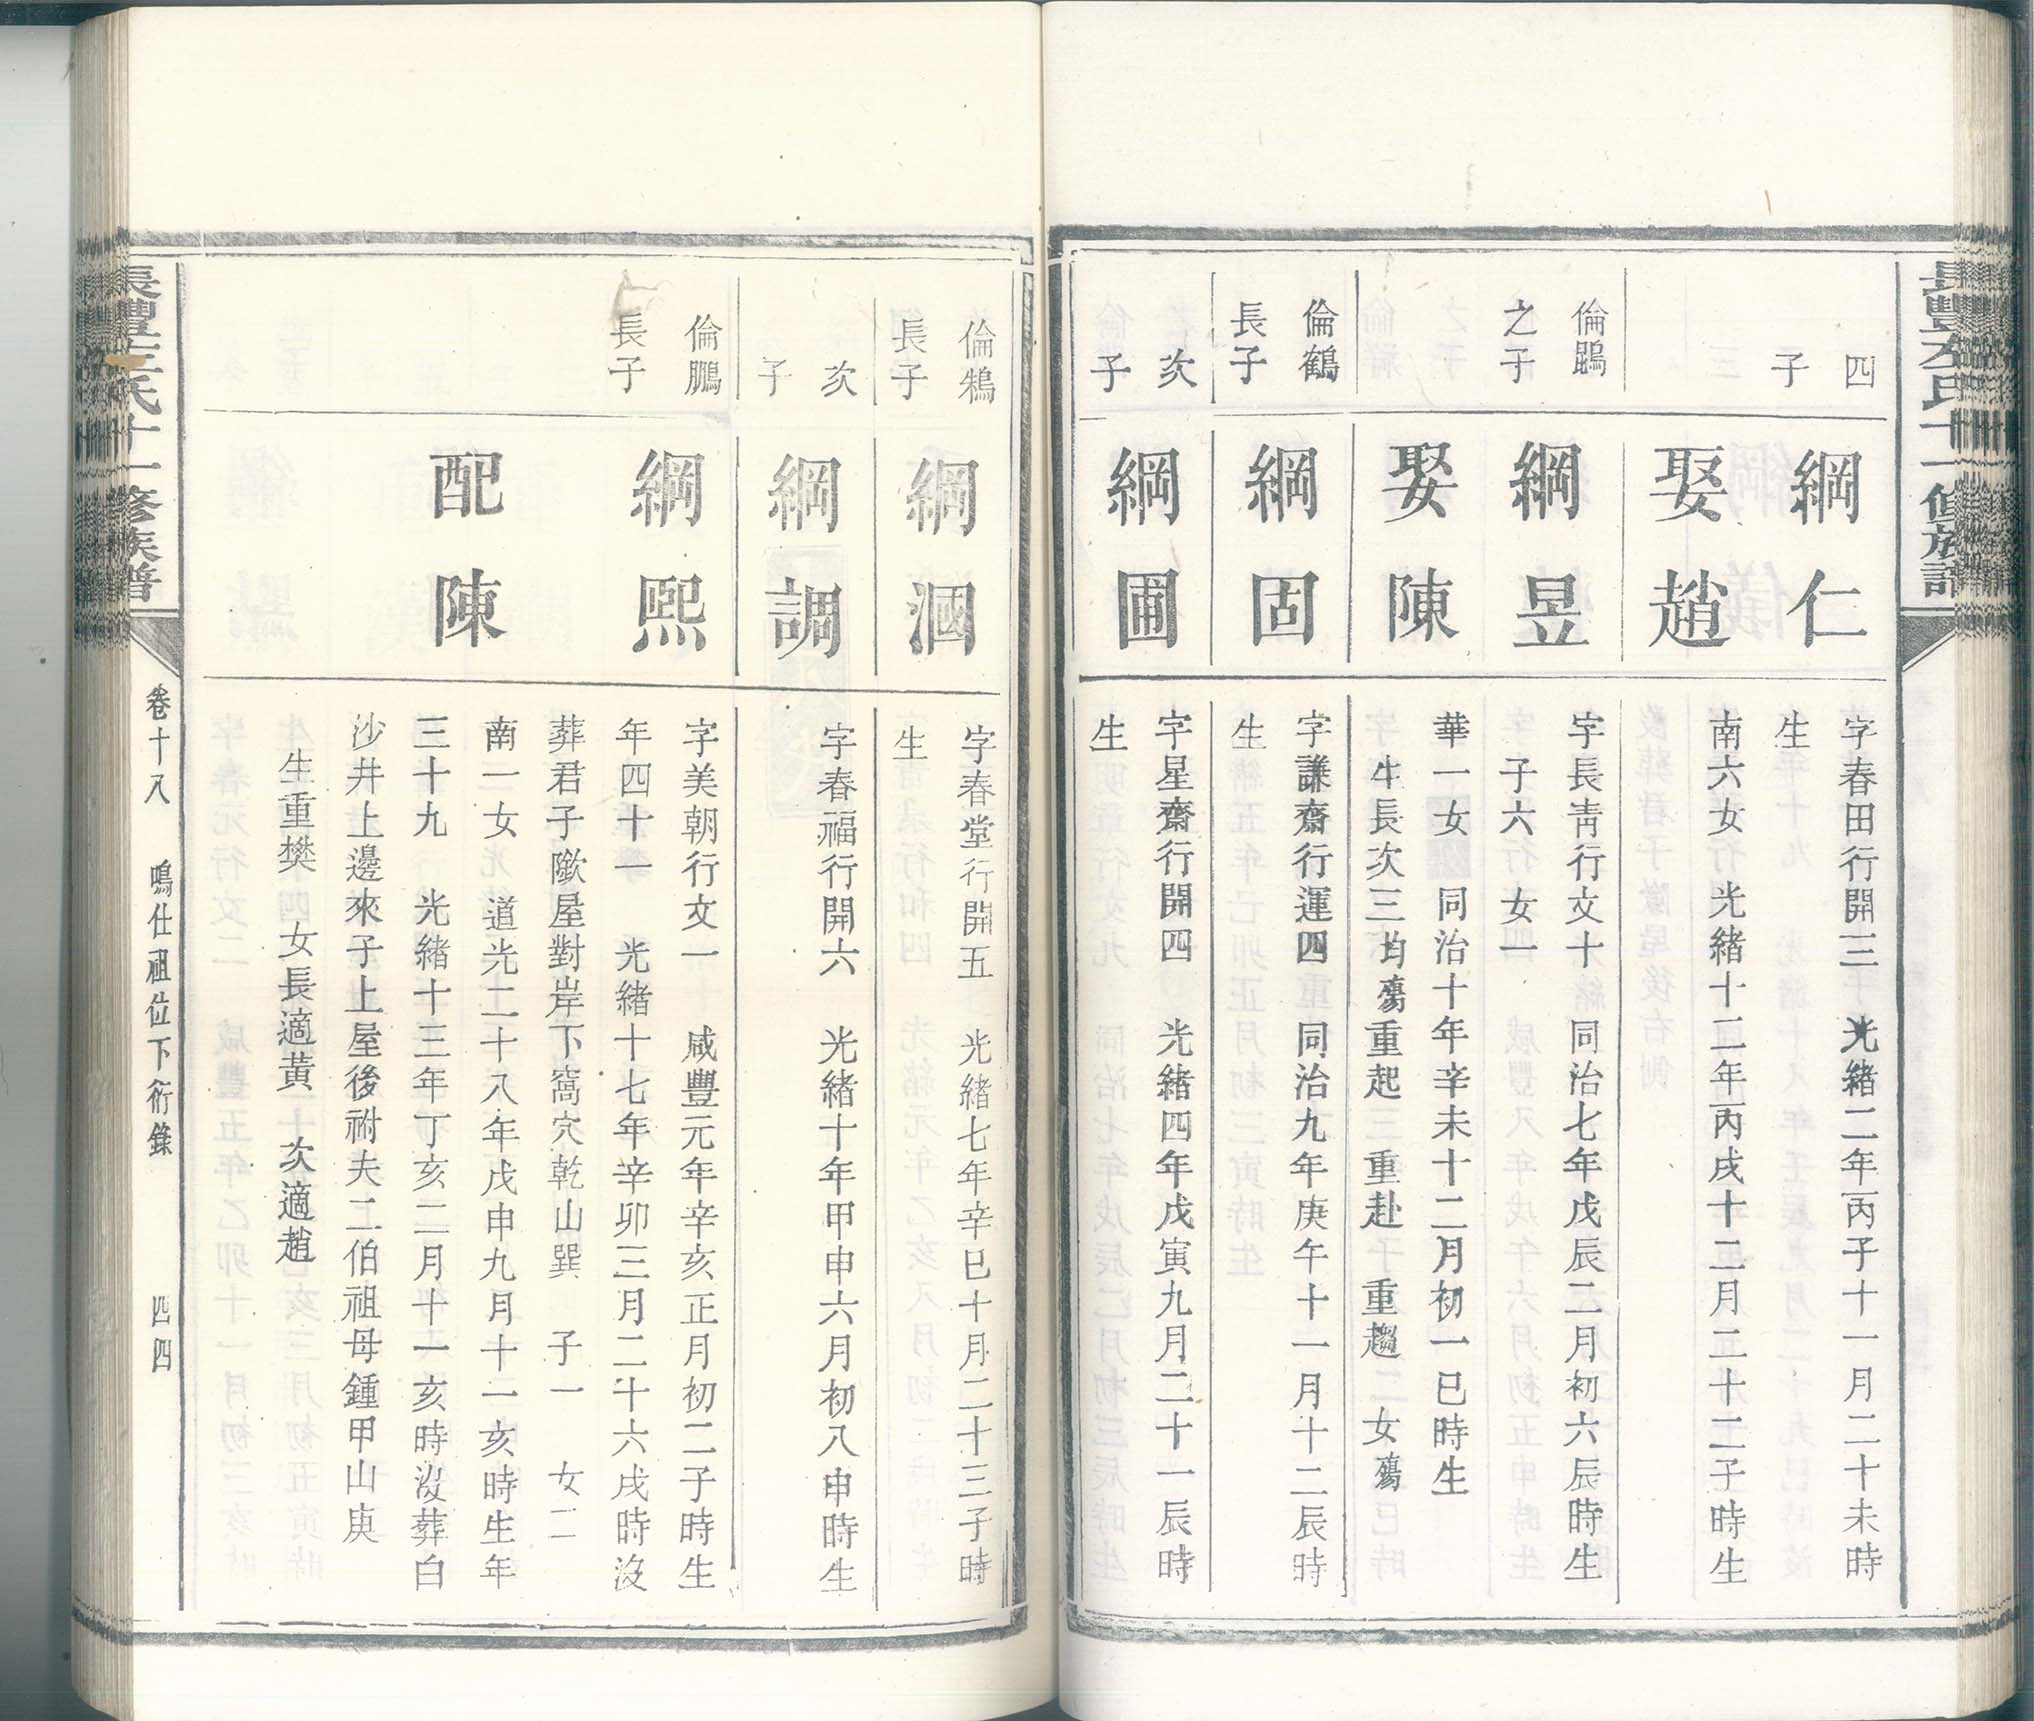 長豐左氏十一修族譜
四
子
綱仁
字春田行開三 光緒二年丙子十一月二十未時
生
娶趙
南六女 光緒十二年丙戌十二月二十二子時生
倫鷗
之子
綱昱
字長靑行文十 同治七年戊辰二月初六辰時生
子六 女一
娶陳
華一女 同治十年辛未十二月初一巳時生
生長次三均殤重起 重赴 重趨 女殤
倫鶴
長子
綱固
字謙齋行運四 同治九年庚午十一月十二辰時
生
次
子
綱圃
字星齋行開四 光緒四年戊寅九月二十一辰時
生
倫鵜
長子
綱涸
字春堂行開五 光緒七年辛巳十月二十三子時
生
次
子
綱調
字春福行開六 光緒十年甲申六月初八申時生
倫鵬
長子
綱熙
字美朝行文一 咸豐元年辛亥正月初二子時生
年四十一 光緒十七年辛卯三月二十六戌時沒
葬君子歇屋對岸下窩穴乾山巽 子一 女二
配陳
南一女 道光二十八年戊申九月十一亥時生年
三十九 光緒十三年丁亥二月十一亥時沒葬白
沙井上邊來子上屋後祔夫二伯祖母鍾甲山庚
生重樊 女長適黃 次適趙
長豐左氏十一修族譜
卷十八 鳴仕祖位下衍錄 四四